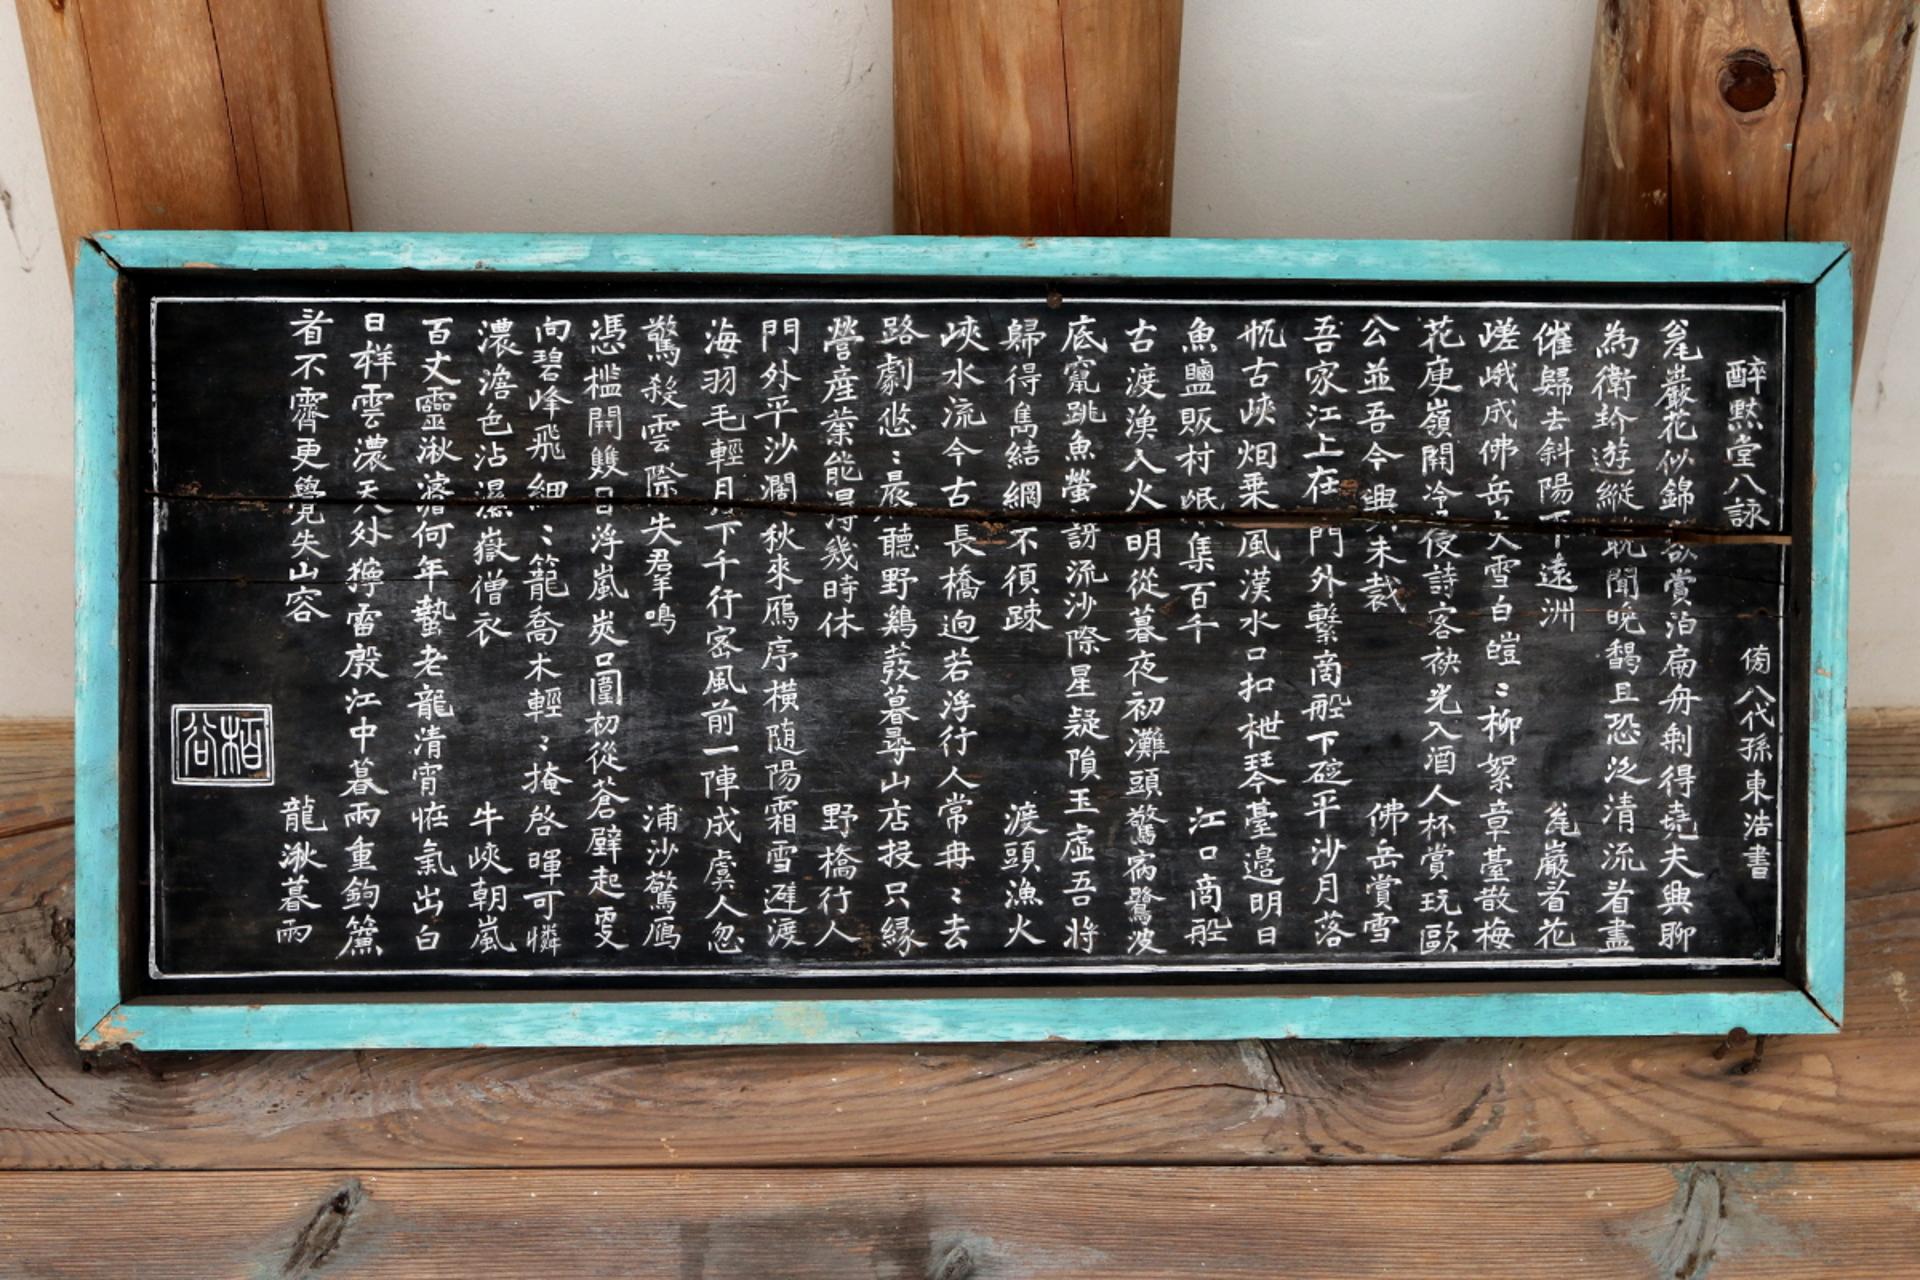 醉默堂八詠 傍八代孫東浩書
瓮巖花似錦欲賞泊扁舟剰得堯夫興聊
為衛鈴遊縱耽聞晩鵲且恐泛清流看盡
催歸去斜陽下遠洲 瓮巖看花
嵯峨成佛岳大雪白皚〻柳絮章臺散梅
花庾嶺開冷侵詩客袂光入酒人杯賞玩歐
公並吾今興未裁 佛岳賞雪
吾家江上在門外繫商船下碇平沙月落
帆古峽烟乗風漢水口扣枻琴臺邉明日
魚鹽販村氓集百千 江口商船
古渡漁人火明從暮夜初灘頭驚宿鷺波
底竄跳魚螢訝流沙際星疑隕玉虛吾將
歸得雋結網不須踈 渡頭漁火
峽水流今古長橋逈若浮行人常冉〻去
路劇悠〻晨聽野鷄發暮尋山店投只緣
營産業能得幾時休 野橋行人
門外平沙濶秋來鴈序橫随陽霜雪避渡
海羽毛輕月下千行密風前一陣成虞人忽
驚殺雲際失羣鳴 浦沙驚鴈
憑檻開雙目浮嵐峽口圍初從蒼壁起更
向碧峰飛細〻籠喬木輕〻掩啓暉可憐
濃澹色沾濕嶽僧衣 牛峽朝嵐
百丈靈湫濬何年蟄老龍清宵恠氣出白
日样雲濃天外獰雷殷江中暮雨重鉤簾
看不霽更覺失山容 龍湫暮雨
栢谷